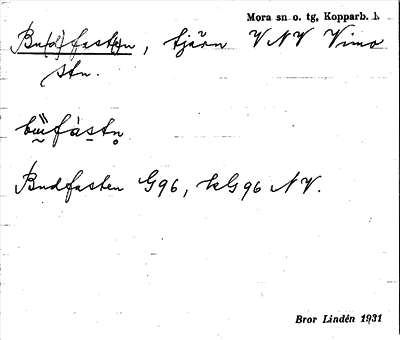 Mora sn o. tg, Kopparb. l.
Bu(d)fasten, tjärn VNV Vimo
stn.
Budfasten G96, kG96 NV.
Bror Lindén 1931